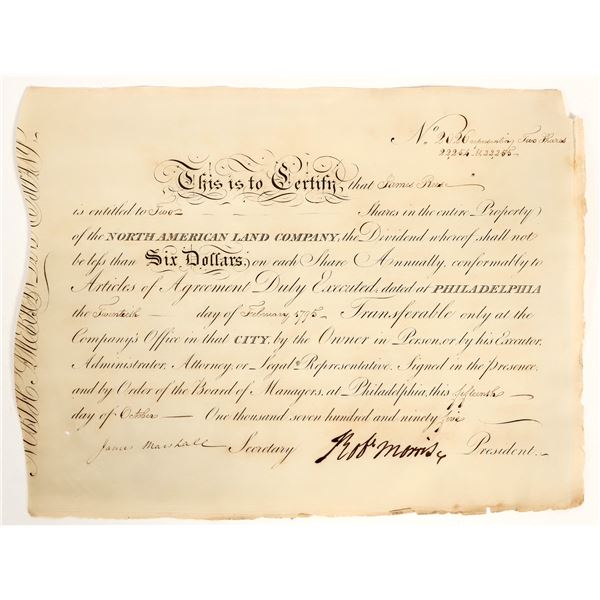 No. 2626 representing Two Shares
22254 & 22255
This is to Certify, that James Rees
is entitled to Two Shares in the entire Property
of the NORTH AMERICAN LAND COMPANY, the Dividend whereof shall not
be less than Six Dollars, on each Share Annually, conformably to
Articles of Agreement Duly Executed, dated at PHILADELPHIA
the Twentieth day of February 1795. Transferable only at the
Company's Office in that CITY, by the Owner in Person, or by his Executor,
Administrator, Attorney, or Legal Representative. Signed in the presence,
and by Order of the Board of Managers, at Philadelphia, this fifteenth
day of October One thousand seven hundred and ninety five
James Marshall Secretary Robt Morris President.